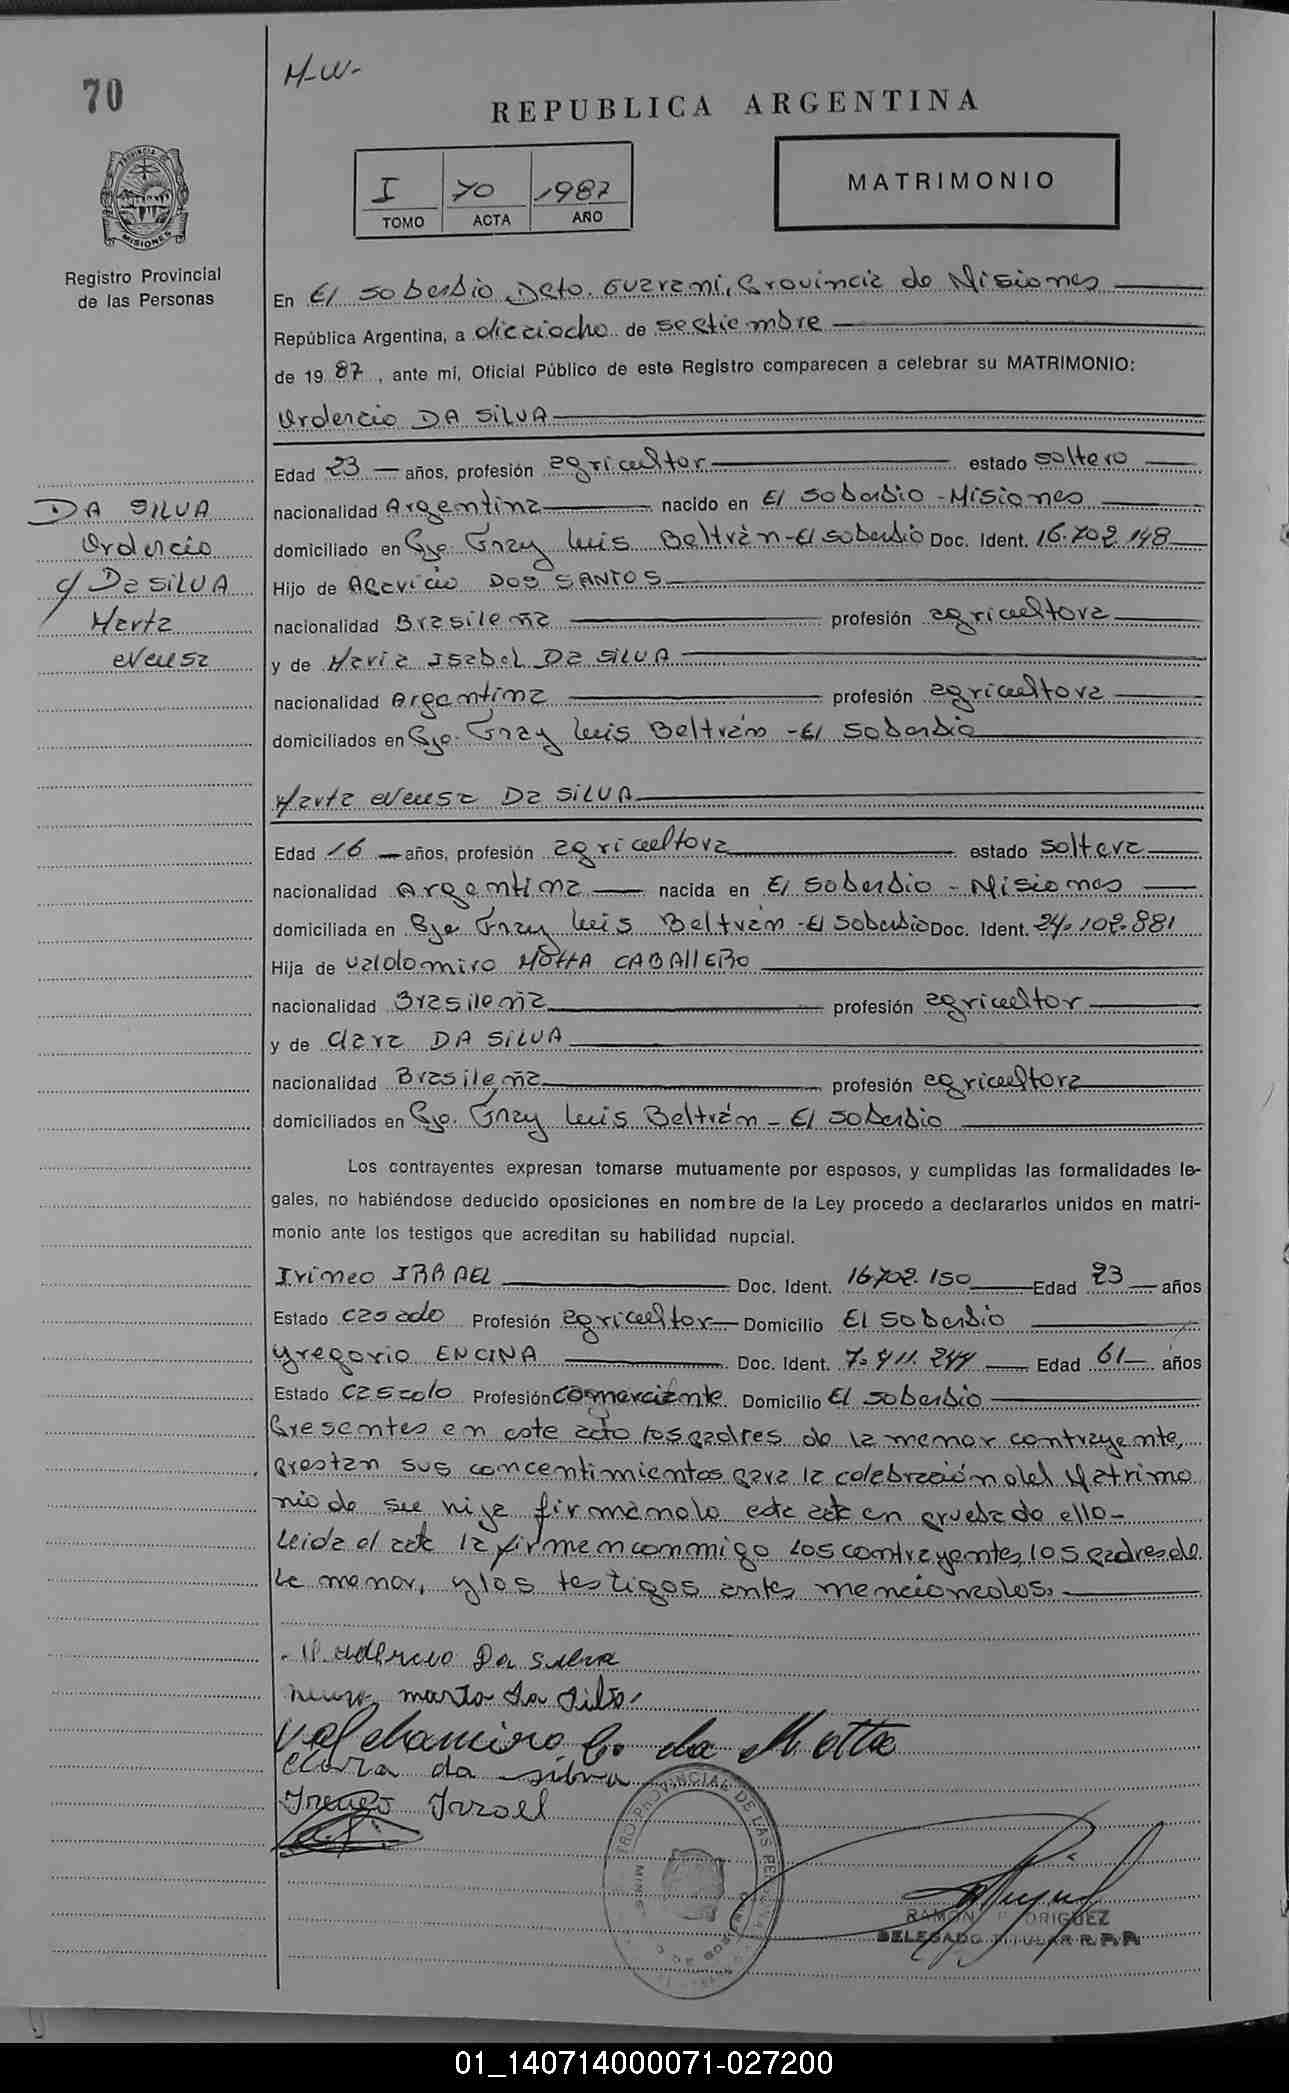 70
M-W-
REPUBLICA ARGENTINA
I 70 1987
TOMO ACTA AÑO
MATRIMONIO
PROVINCIA DE
MISIONES
Registro Provincial
de las Personas
En El Soberbio Dpto. Guarani, Provincia de Misiones
República Argentina, a dieciocho de septiembre
de 19 87, ante mí, Oficial Público de este Registro comparecen a celebrar su MATRIMONIO:
Urdercio DA SILVA
Edad 23 años, profesión agricultor estado soltero
nacionalidad Argentina nacido en El Soberbio - Misiones
domiciliado en Pje. Fray Luis Beltrán - El Soberbio Doc. Ident. 16.702.148
Hijo de DOS SANTOS
nacionalidad Brasileña profesión agricultora
y de Maria Isabel Da SILVA
nacionalidad Argentina profesión agricultora
domiciliados en Pje. Fray Luis Beltrán - El Soberbio
DA SILVA
Urdercio
c/ Da SILVA
Marta
Neusa
Marta Neusa Da SILVA
Edad 16 años, profesión agricultora estado soltera
nacionalidad Argentina nacida en El Soberbio - Misiones
domiciliada en Pje Fray Luis Beltrán - El Soberbio Doc. Ident. 24.102.881
Hija de Valdomiro MOTTA CABALLERO
nacionalidad Brasileña profesión agricultor
y de Clara DA SILVA
nacionalidad Brasileña profesión agricultora
domiciliados en Pje. Fray Luis Beltrán - El Soberbio
Los contrayentes expresan tomarse mutuamente por esposos, y cumplidas las formalidades le-
gales, no habiéndose deducido oposiciones en nombre de la Ley procedo a declararlos unidos en matri-
monio ante los testigos que acreditan su habilidad nupcial.
Irineo IRRAEL Doc. Ident. 16702.150 Edad 23 años
Estado casado Profesión agricultor Domicilio El Soberbio
Gregorio ENCINA Doc. Ident. 7.411.244 Edad 61 años
Estado casado Profesión comerciante Domicilio El Soberbio
Presentes en este acto los padres de la menor contrayente,
prestan sus concentimientos para la celebración del Matrimo
nio de su hija firmando esta acta en prueba de ello-
Leida el acta la firman conmigo los contrayentes, los padres de
la menor, y los testigos antes mencionados.
Da Silva
Neusa marta da Silva
Valdomiro C. da Motta
Clara da silva
Ireneo Irrael
RAMON RODRIGUEZ
DELEGADO TITULAR R.P.P.
01_140714000071-027200